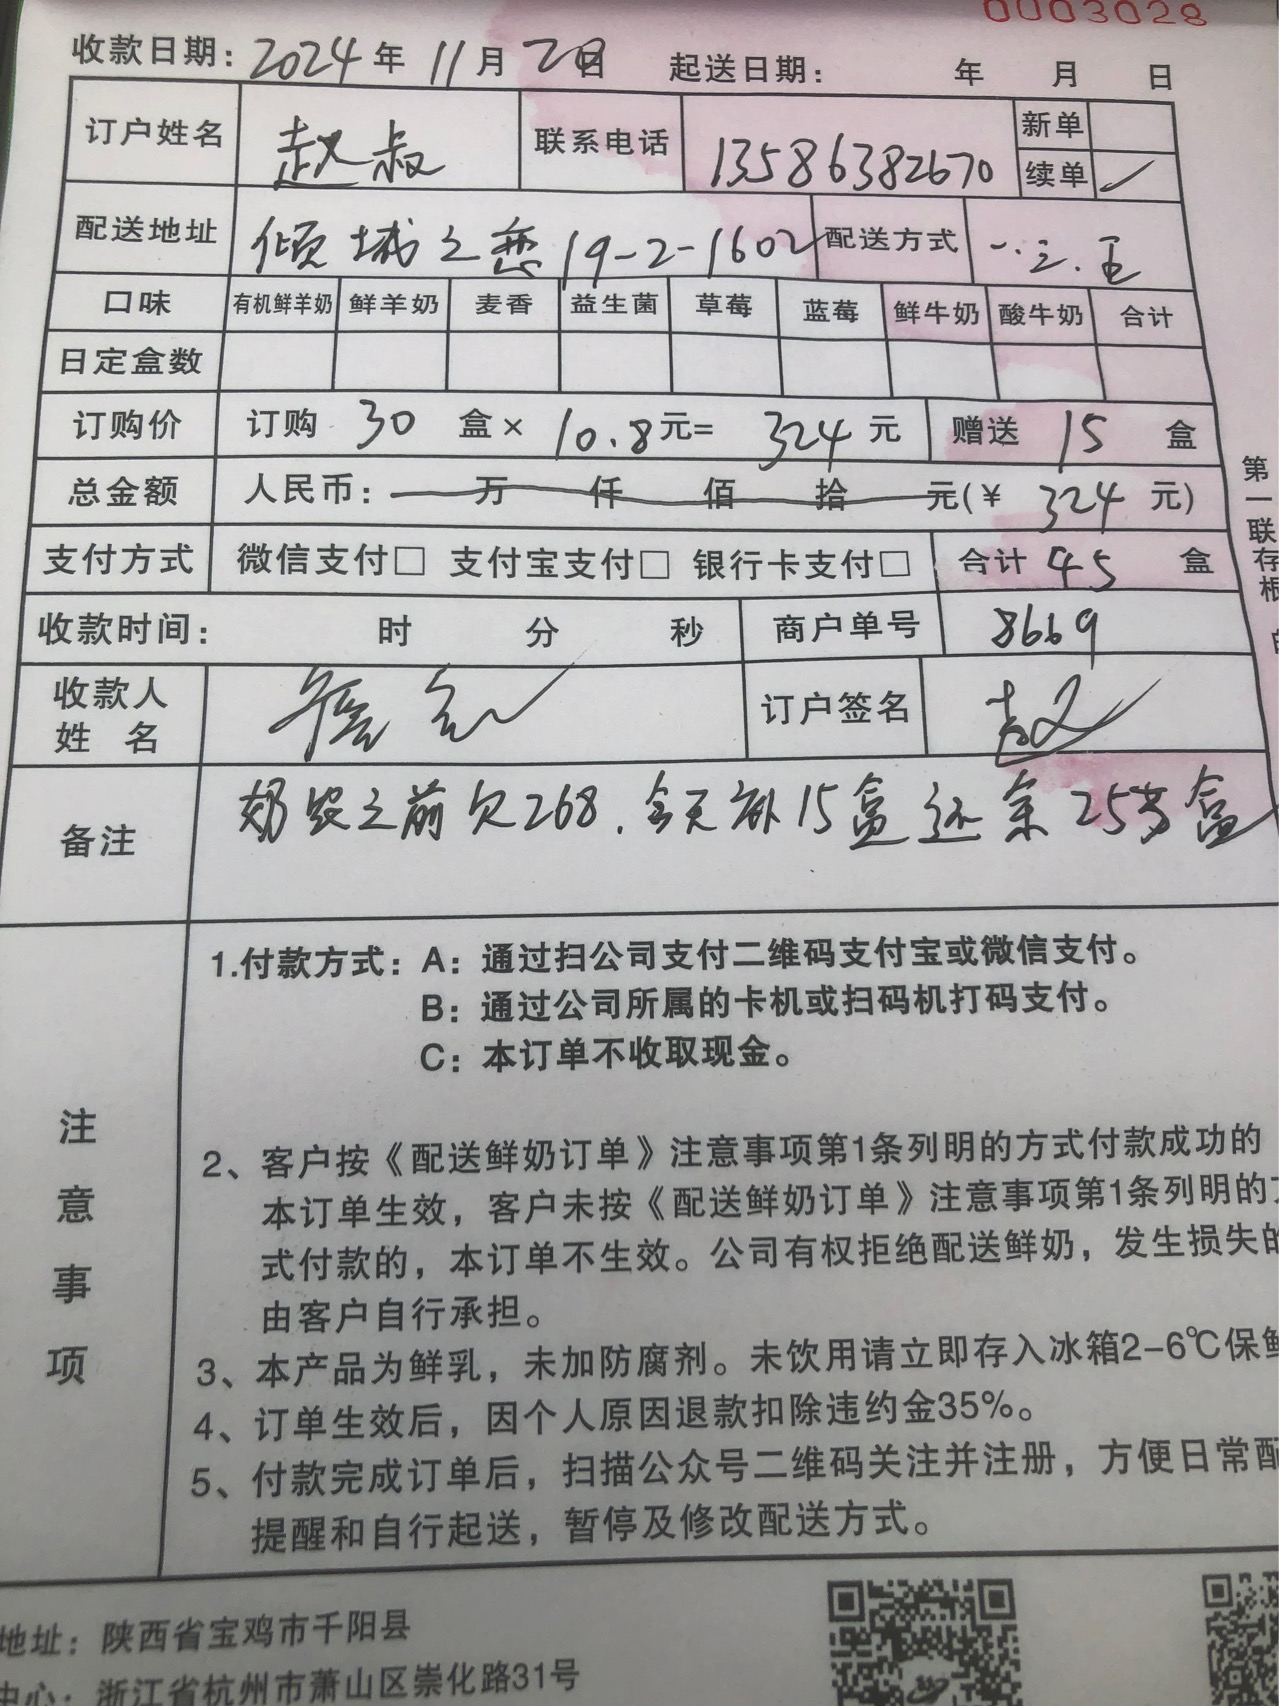 0003028
收款日期：2024年11月2日 起送日期： 年 月 日
订户姓名 赵叔 联系电话 13586382670 新单
续单 ✓
配送地址 倾城之恋19-2-1602 配送方式 一.三.五
口味 有机鲜羊奶 鲜羊奶 麦香 益生菌 草莓 蓝莓 鲜牛奶 酸牛奶 合计
日定盒数
订购价 订购 30 盒× 10.8元= 324 元 赠送 15 盒
总金额 人民币： 万 仟 佰 拾 元(¥ 324 元)
支付方式 微信支付□ 支付宝支付□ 银行卡支付□ 合计 45 盒
收款时间： 时 分 秒 商户单号 8669
收款人
姓 名
订户签名 赵
备注 奶农之前欠268.今天补15盒还余253盒
第一联存根
注意事项
1.付款方式：A：通过扫公司支付二维码支付宝或微信支付。
B：通过公司所属的卡机或扫码机打码支付。
C：本订单不收取现金。
2、客户按《配送鲜奶订单》注意事项第1条列明的方式付款成功的
本订单生效，客户未按《配送鲜奶订单》注意事项第1条列明的方
式付款的，本订单不生效。公司有权拒绝配送鲜奶，发生损失的
由客户自行承担。
3、本产品为鲜乳，未加防腐剂。未饮用请立即存入冰箱2-6℃保鲜
4、订单生效后，因个人原因退款扣除违约金35%。
5、付款完成订单后，扫描公众号二维码关注并注册，方便日常配
提醒和自行起送，暂停及修改配送方式。
地址：陕西省宝鸡市千阳县
中心：浙江省杭州市萧山区崇化路31号